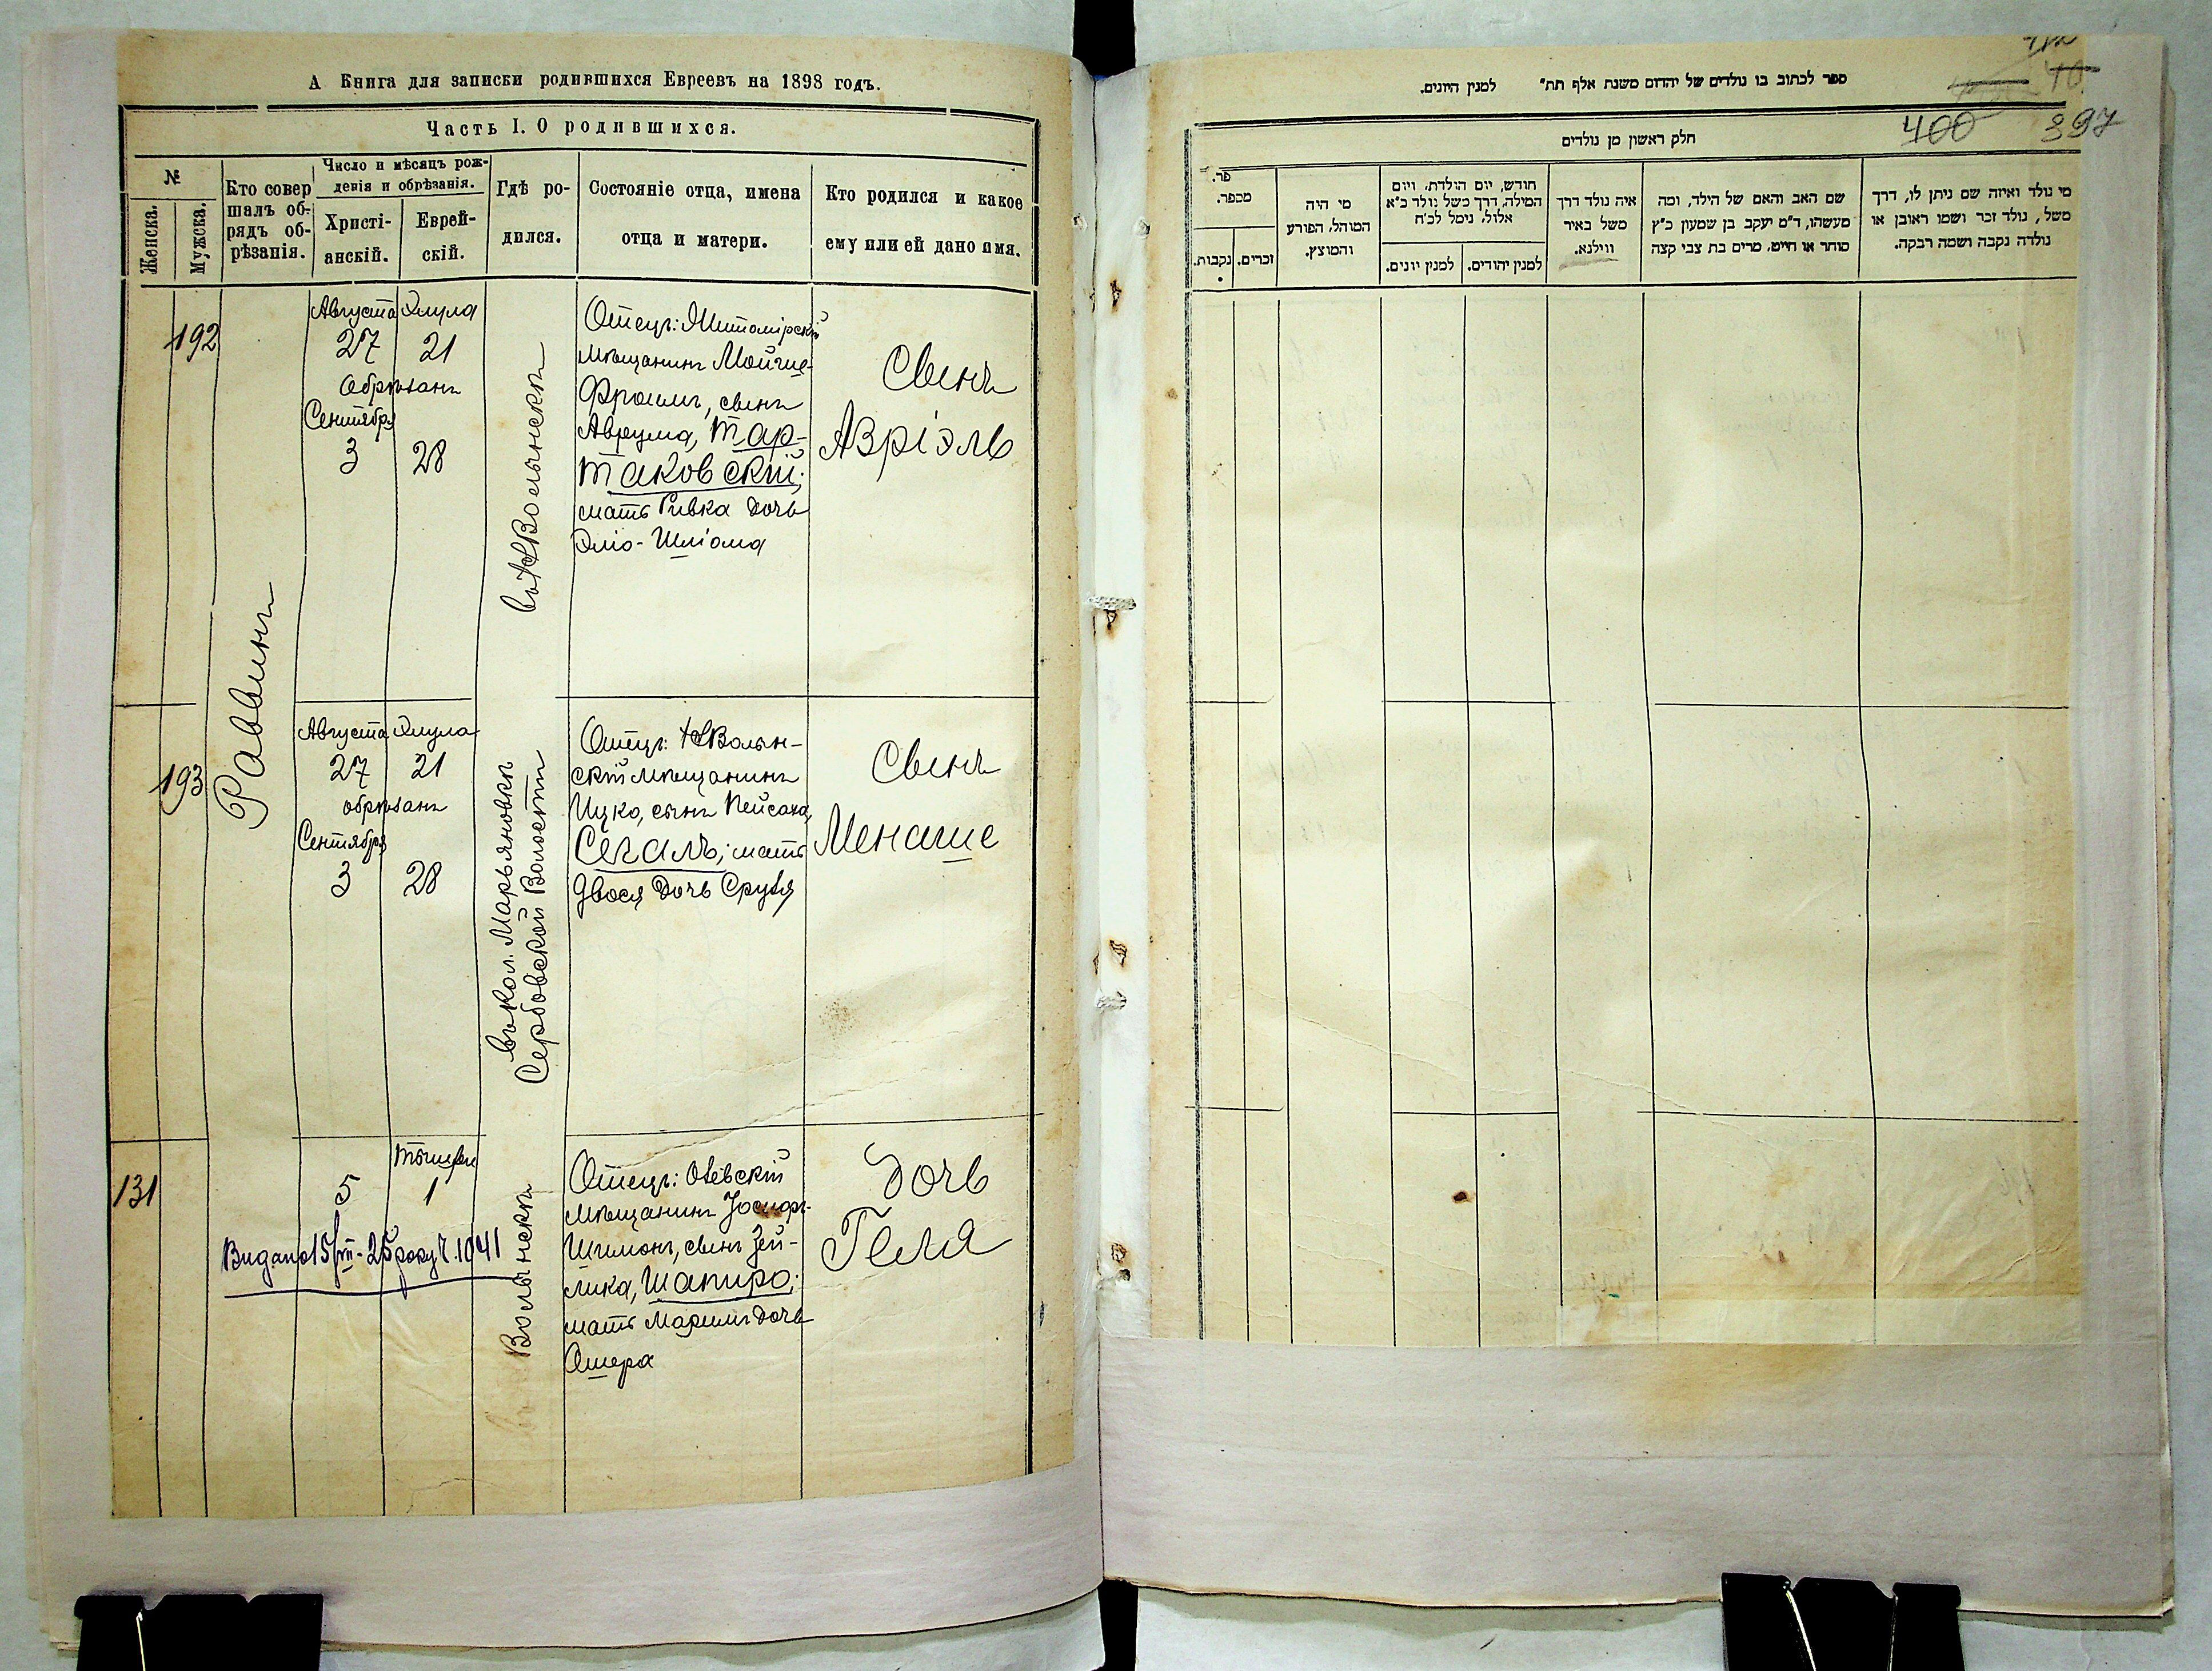 А Книга для записки родившихся Евреевъ на 1898 годъ.
Часть I. О родившихся.
№
Женска.
Мужска.
Кто совер
шалъ об-
рядъ об-
рѣзанія.
Число и мѣсяцъ рож-
денія и обрѣзанія.
Христі-
анскій.
Еврей-
скій.
Гдѣ ро-
дился.
Состояніе отца, имена
отца и матери.
Кто родился и какое
ему или ей дано имя.
192
Раввинъ
Августа Элула
27 21
Обрѣзанъ
Сентября
3 28
въ НВолынскѣ
Отецъ: Житомірскій
мѣщанинъ Мойше-
Фроимъ, сынъ
Аврума, Тар-
таковскій;
мать Ривка дочь
Эліо-Шліома
Сынъ
Азріэль
193
Августа Элула
27 21
обрѣзанъ
Сентября
3 28
въ кол. Марьяновкѣ
Сербовской Волости
Отецъ: НВолын-
скій мѣщанинъ
Ицко, сынъ Пейсаха,
Сегалъ; мать
Двося дочь Сруля
Сынъ
Менаше
131
Тышри
5 1
Видано 15/VII-25 року Ч. 1041
Волынскѣ
Отецъ: Овѣвскій
мѣщанинъ Іосифъ-
Шимонъ, сынъ Зей-
лика, Шапиро;
мать Маримъ дочь
Ошера
Дочь
Геля
ספר לכתוב בו נולדים של יהדום משנת אלף תת״ למנין היונים.
40
400 397
חלק ראשון מן נולדים
מי נולד ואיזה שם ניתן לו, דרך
משל, נולד זכר ושמו ראובן או
נולדה נקבה ושמה רבקה.
שם האב והאם של הילד, ומה
מעשהו, ד״מ יעקב בן שמעון כ״ץ
סוחר או חייט, מרים בת צבי קצה
איה נולד דרך
משל באיר
ווילנא.
חודש, יום הולדת, ויום
המילה, דרך משל נולד כ״א
אלול, נימל לכ״ח
למנין יהודים.
למנין יונים.
מי היה
המוהל, הפורע
והמוצץ.
פר.
מספר.
זכרים.
נקבות.